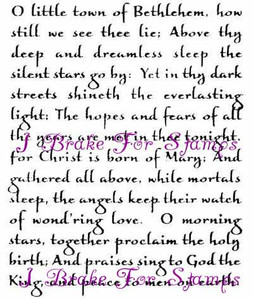 O little town of Bethlehem, how
still we see thee lie; Above thy
deep and dreamless sleep the
silent stars go by: Yet in thy dark
streets shineth the everlasting
light; The hopes and fears of all
thy years are met in thee tonight.
I Brake For Stamps
for Christ is born of Mary; And
gathered all above, while mortals
sleep, the angels keep their watch
of wond'ring love. O morning
stars, together proclaim the holy
birth; And praises sing to God the
King, and peace to men on earth
I Brake For Stamps